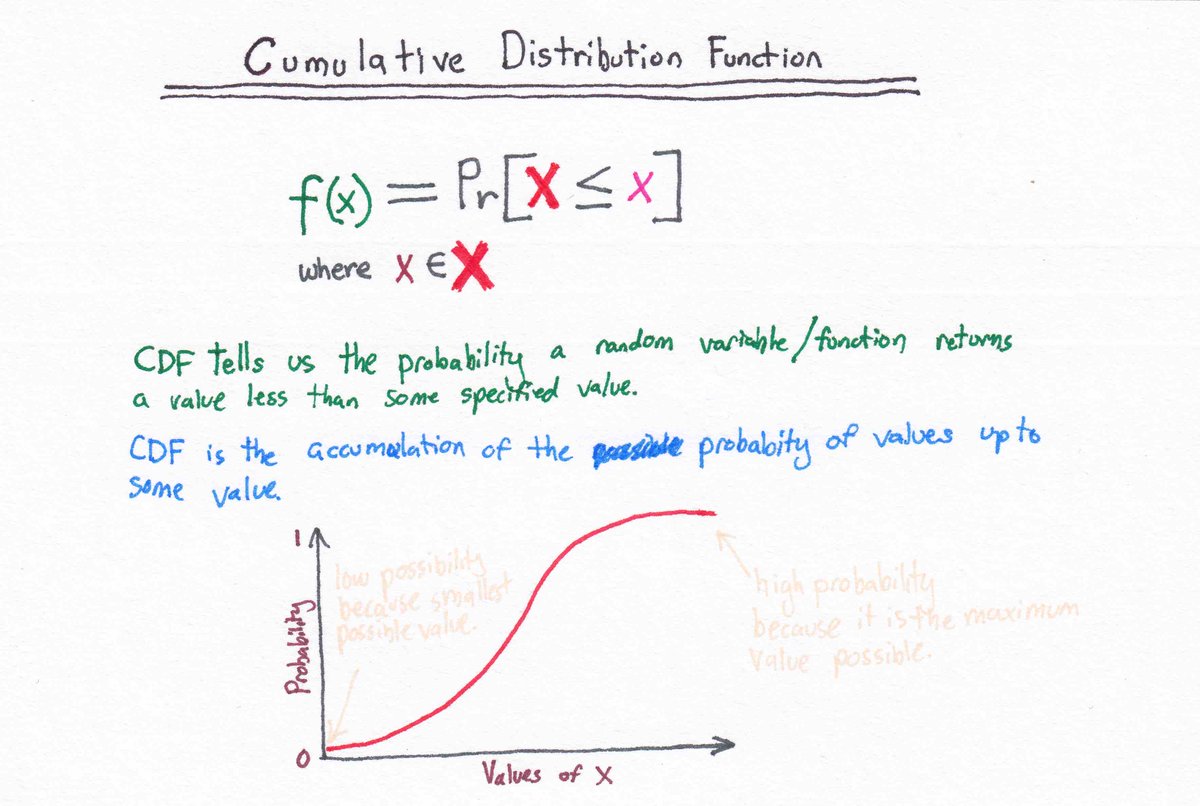 Cumulative Distribution Function
f(x) = Pr[X ≤ x]
where x ∈ X
CDF tells us the probability a random variable/function returns
a value less than some specified value.
CDF is the accumulation of the possible probabity of values up to
some value.
1
low possibility
because smallest
possible value.
high probability
because it is the maximum
value possible.
Probability
0
Values of X